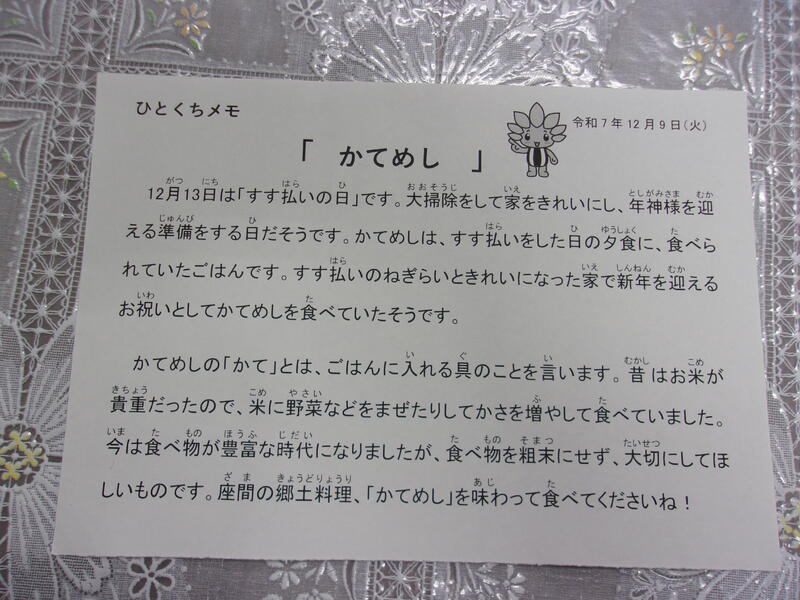 ひとくちメモ
令和7年12月9日(火)
「 かてめし 」
12月13日は「すす払いの日」です。大掃除をして家をきれいにし、年神様を迎
える準備をする日だそうです。かてめしは、すす払いをした日の夕食に、食べら
れていたごはんです。すす払いのねぎらいときれいになった家で新年を迎える
お祝いとしてかてめしを食べていたそうです。
かてめしの「かて」とは、ごはんに入れる具のことを言います。昔はお米が
貴重だったので、米に野菜などをまぜたりしてかさを増やして食べていました。
今は食べ物が豊富な時代になりましたが、食べ物を粗末にせず、大切にしてほ
しいものです。座間の郷土料理、「かてめし」を味わって食べてくださいね！